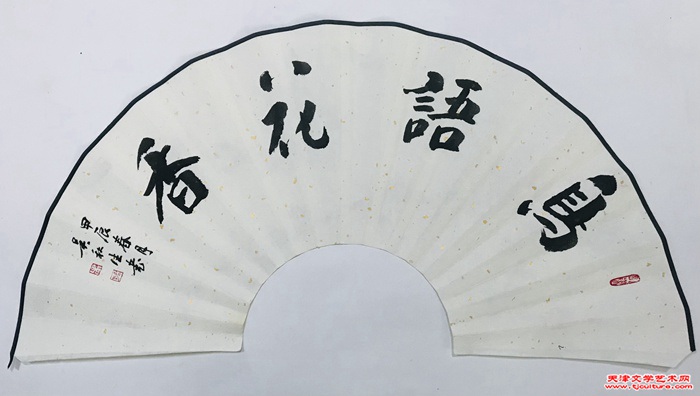 鳥語花香
甲辰春月
吴秋生書
天津文学艺术网
www.tjculture.com